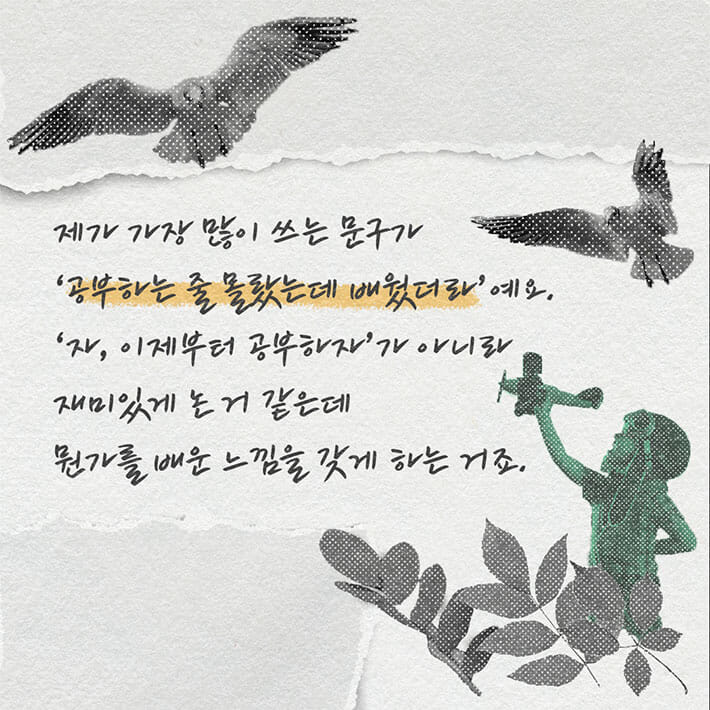 제가 가장 많이 쓰는 문구가
‘공부하는 줄 몰랐는데 배웠더라’예요.
‘자, 이제부터 공부하자’가 아니라
재미있게 논 거 같은데
뭔가를 배운 느낌을 갖게 하는 거죠.